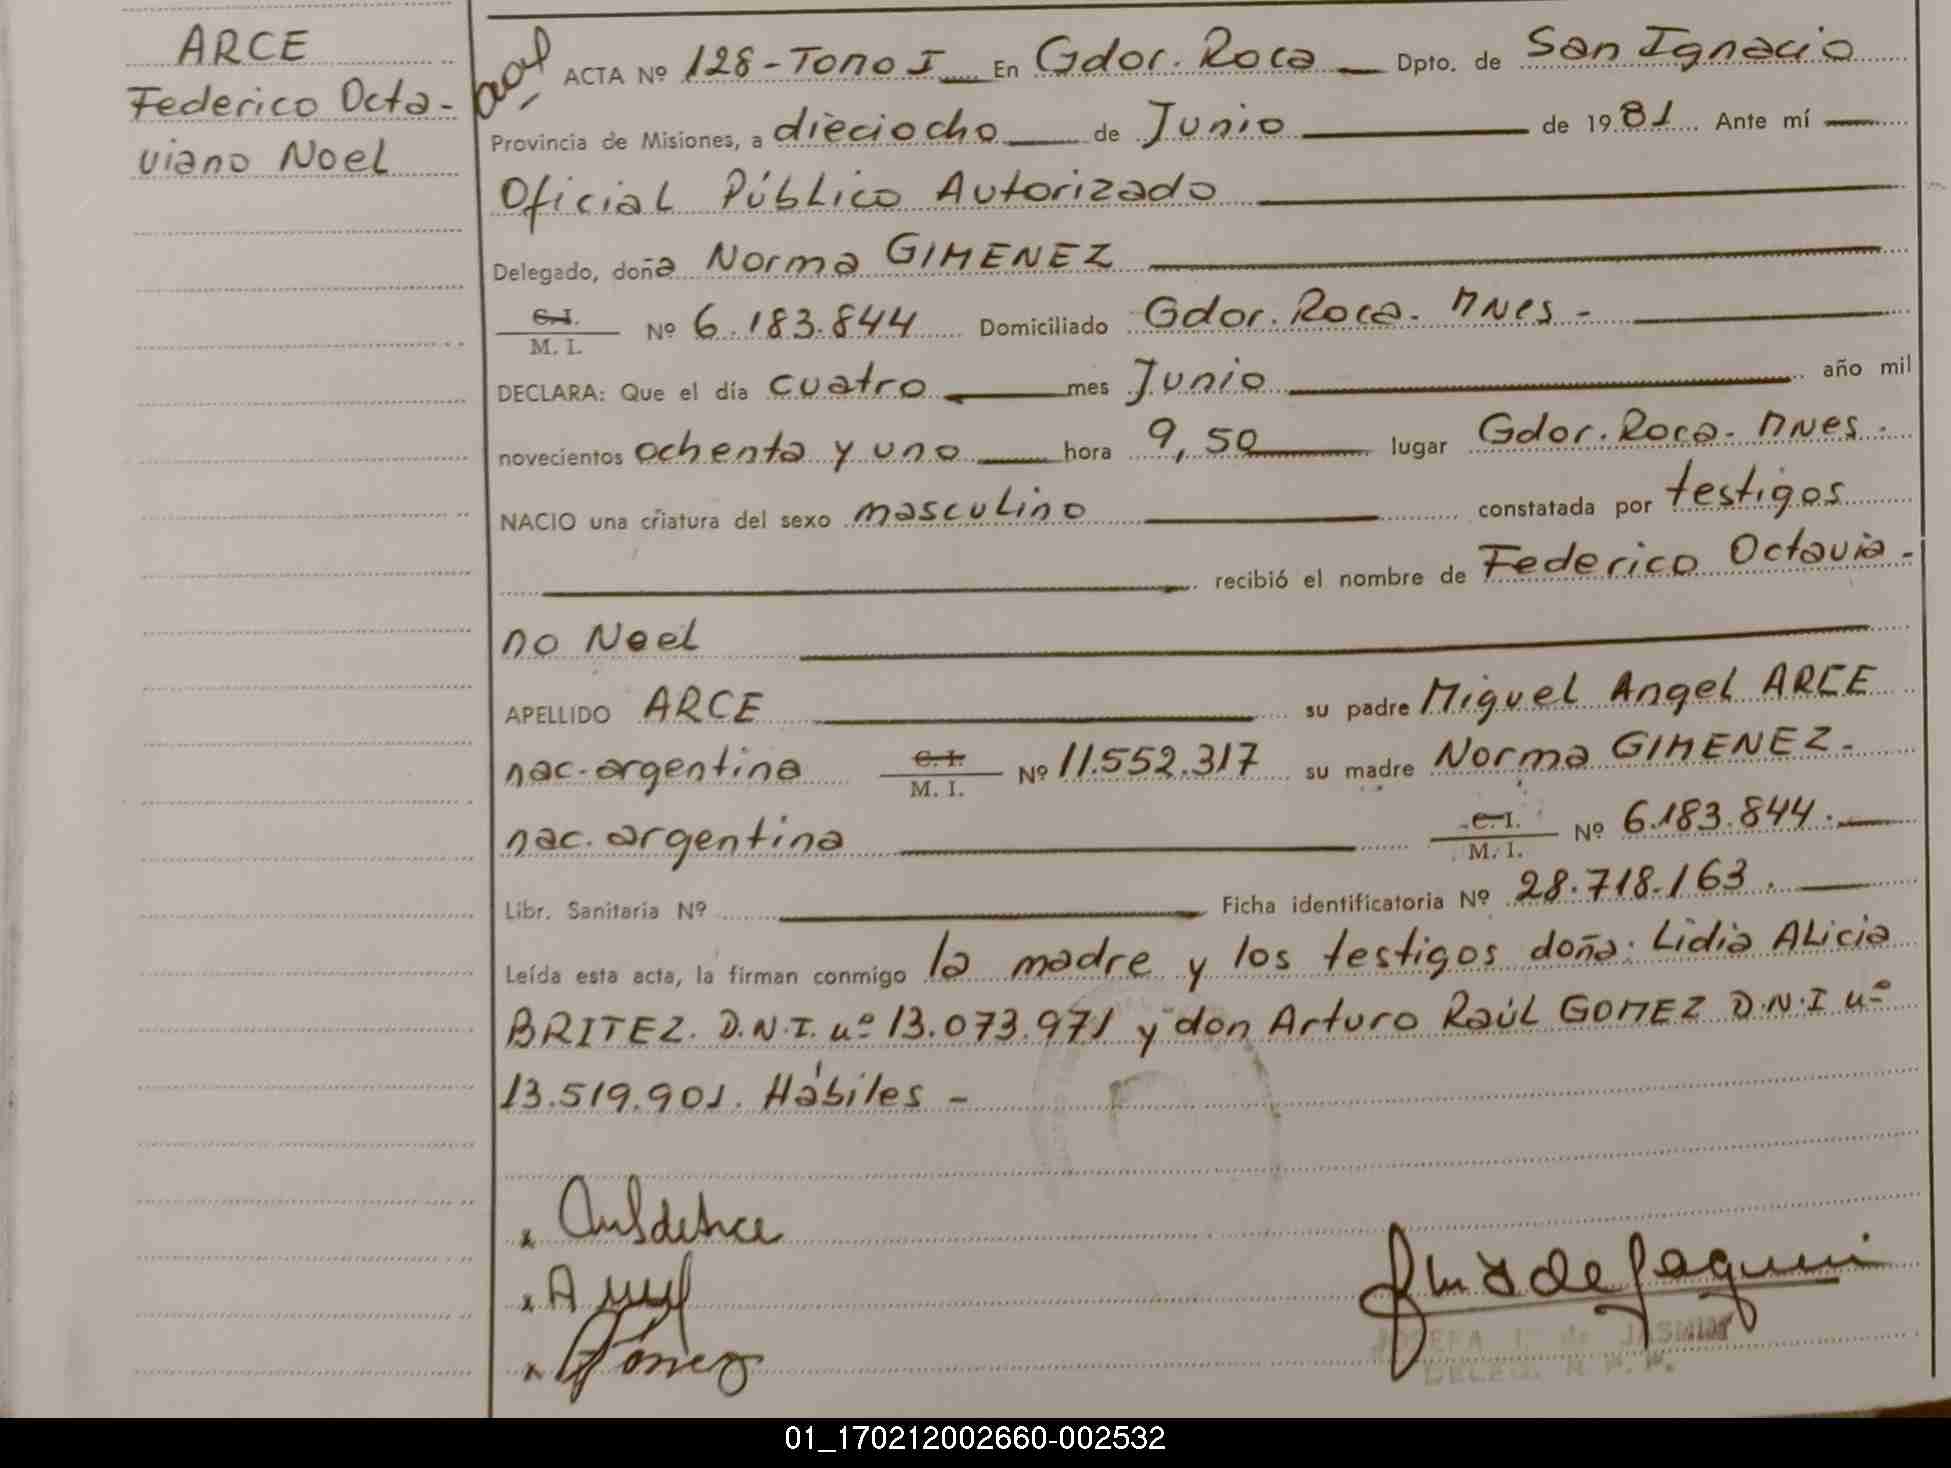 ARCE
Federico Octa-
viano Noel
ACTA Nº 128-Tomo I En Gdor. Roca Dpto. de San Ignacio
Provincia de Misiones, a dieciocho de Junio de 1981 Ante mí
Oficial Público Autorizado
Delegado, doña Norma GIMENEZ
C.I. M. I. Nº 6.183.844 Domiciliado Gdor. Roca. Mnes -
DECLARA: Que el día cuatro mes Junio año mil
novecientos ochenta y uno hora 9,50 lugar Gdor. Roca. Mnes.
NACIO una criatura del sexo masculino constatada por testigos
recibió el nombre de Federico Octavia-
no Noel
APELLIDO ARCE su padre Miguel Angel ARCE
nac. argentina C.I. M. I. Nº 11.552.317 su madre Norma GIMENEZ.
nac. argentina C.I. M. I. Nº 6.183.844.
Libr. Sanitaria Nº Ficha identificatoria Nº 28.718.163.
Leída esta acta, la firman conmigo la madre y los testigos doña: Lidia Alicia
BRITEZ. D.N.I. nº 13.073.971 y don Arturo Raúl GOMEZ D.N.I nº
13.519.901. Hábiles -
Gómez
JOSEFA de JASMIN
DELEG. R. P. P.
01_170212002660-002532